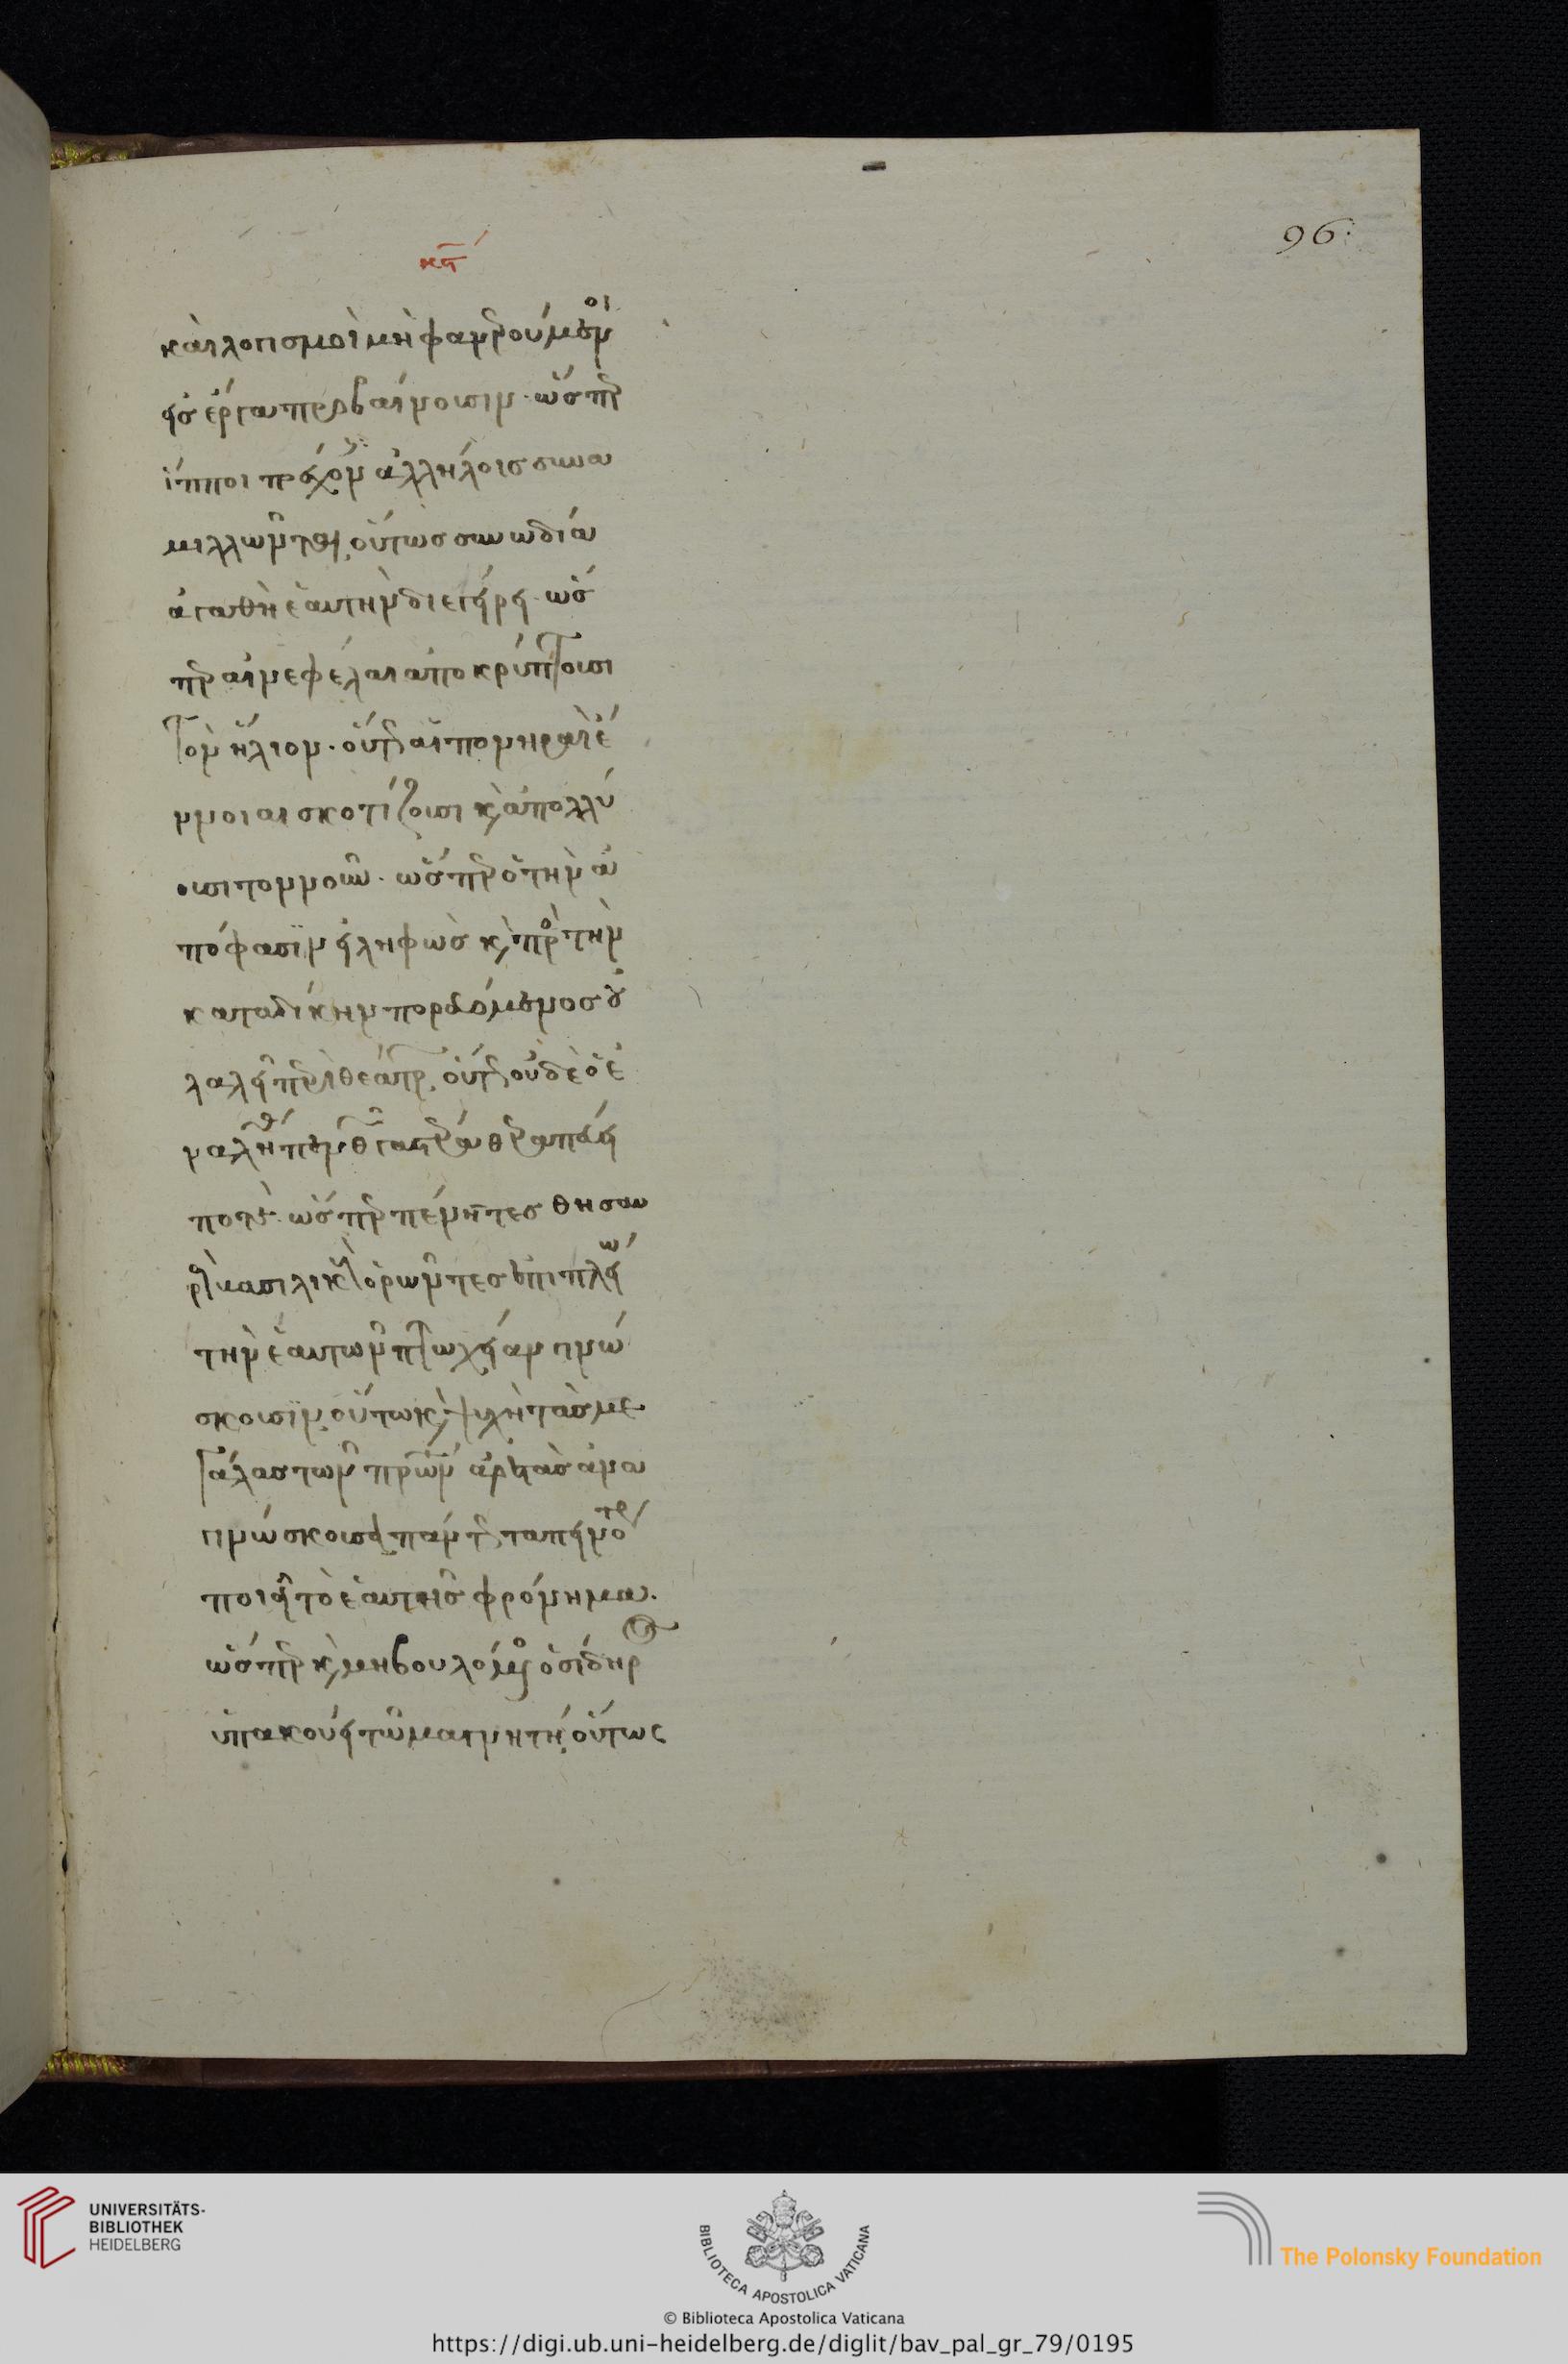 96.
κϛ
καὶ λογισμοὶ μὴ φανερούμενοι
εἰς ἔργα προβαίνουσιν. ὥσπερ
ἵπποι τρέχοντες ἀλλήλοις συνα
μιλλῶνται, οὕτως συνωδία
ἀγαθὴ ἑαυτὴν διεγείρει. ὥσ
περ αἱ νεφέλαι ἀποκρύπτουσι
τὸν ἥλιον. οὕτως αἱ πονηραὶ ἔ
ννοιαι σκοτίζουσι καὶ ἀπολλύ
ουσι τον νουν. ὥσπερ ὁ τὴν ἀ
πόφασιν εἰληφὼς καὶ πρὸς τὴν
καταδίκην πορευόμενος οὐ
λαλεῖ περὶ θεάτρων, οὕτως οὐδὲ ὁ ἐ
ν ἀληθεία πενθῶν γαστέρα θεραπεύει
ποτέ. ὥσπερ πένητες θησαυ
ροὺς βασιλικοὺς ὁρῶντες ἐπιπλεῖω
τὴν ἑαυτῶν πτωχείαν γινώ
σκουσιν, οὕτω καὶ ψυχὴ τὰς με
γάλας τῶν πατέρων ἀρετὰς ἀνα
γινώσκουσα, πάντως ταπεινότερον
ποιεῖ τὸ ἑαυτῆς φρόνημα.
ὥσπερ καὶ μὴ βουλόμενος ὁ σίδηρος
ὑπακούει τῶ μαγνήτη, οὕτως
UNIVERSITÄTS-
BIBLIOTHEK
HEIDELBERG
BIBLIOTECA APOSTOLICA VATICANA
The Polonsky Foundation
© Biblioteca Apostolica Vaticana
https://digi.ub.uni-heidelberg.de/diglit/bav_pal_gr_79/0195